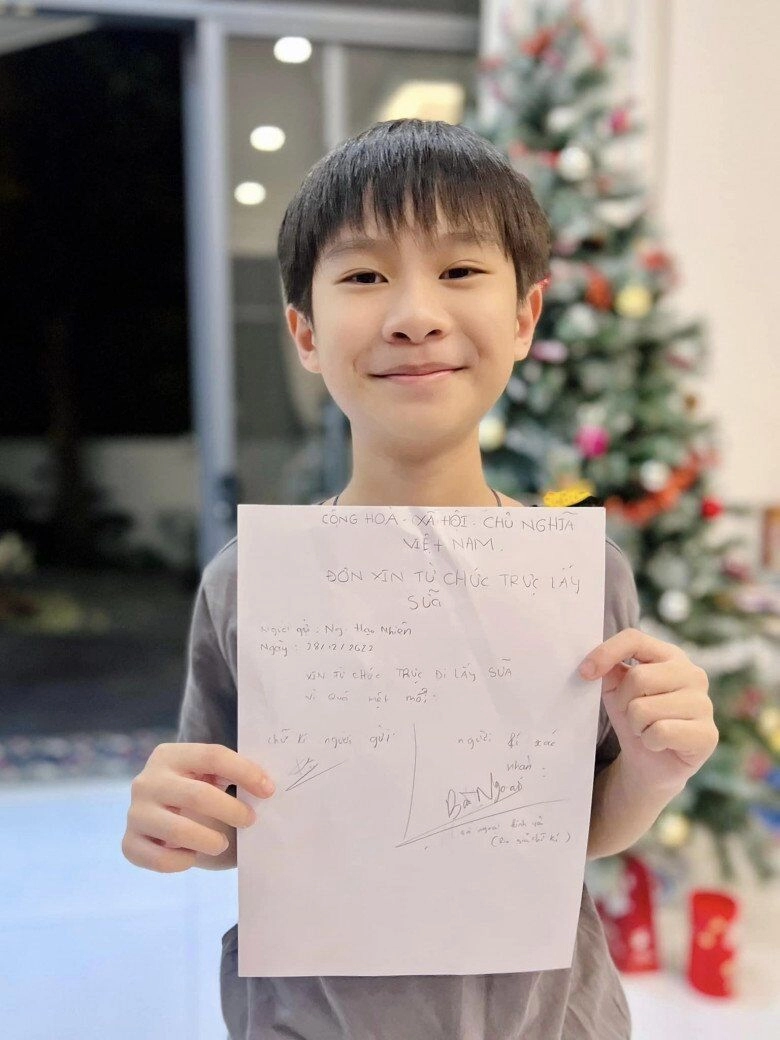 CỘNG HOÀ - XÃ HỘI - CHỦ NGHĨA
VIỆT NAM.
ĐƠN XIN TỪ CHỨC TRỰC LẤY
SỮA
Người gửi: Ng. Hạo Nhiên
Ngày: 28/12/2022
XIN TỪ CHỨC TRỰC ĐI LẤY SỮA
vì quá mệt mỏi.
chữ kí người gửi
người kí xác
nhận:
Bà Ngoại